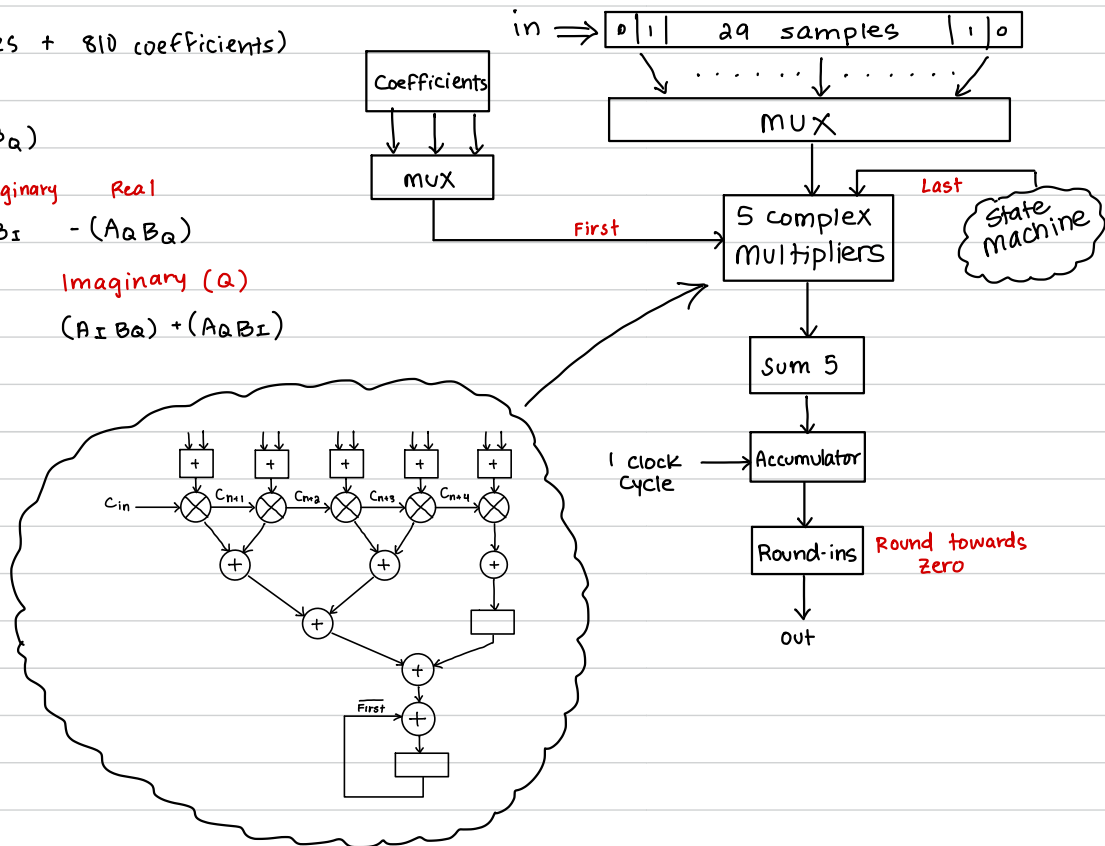 es + 810 coefficients)
BQ)
ginary Real
BI - (AQ BQ)
Imaginary (Q)
(AI BQ) + (AQ BI)
in ⇒ 0 | 1 | 29 samples | 1 | 0
Coefficients
mux
mux
First
Last
State
machine
5 complex
multipliers
Sum 5
1 clock
cycle
Accumulator
Round-ins
Round towards
zero
out
+ + + + +
Cin Cn+1 Cn+2 Cn+3 Cn+4
+ + +
+
+
First
+